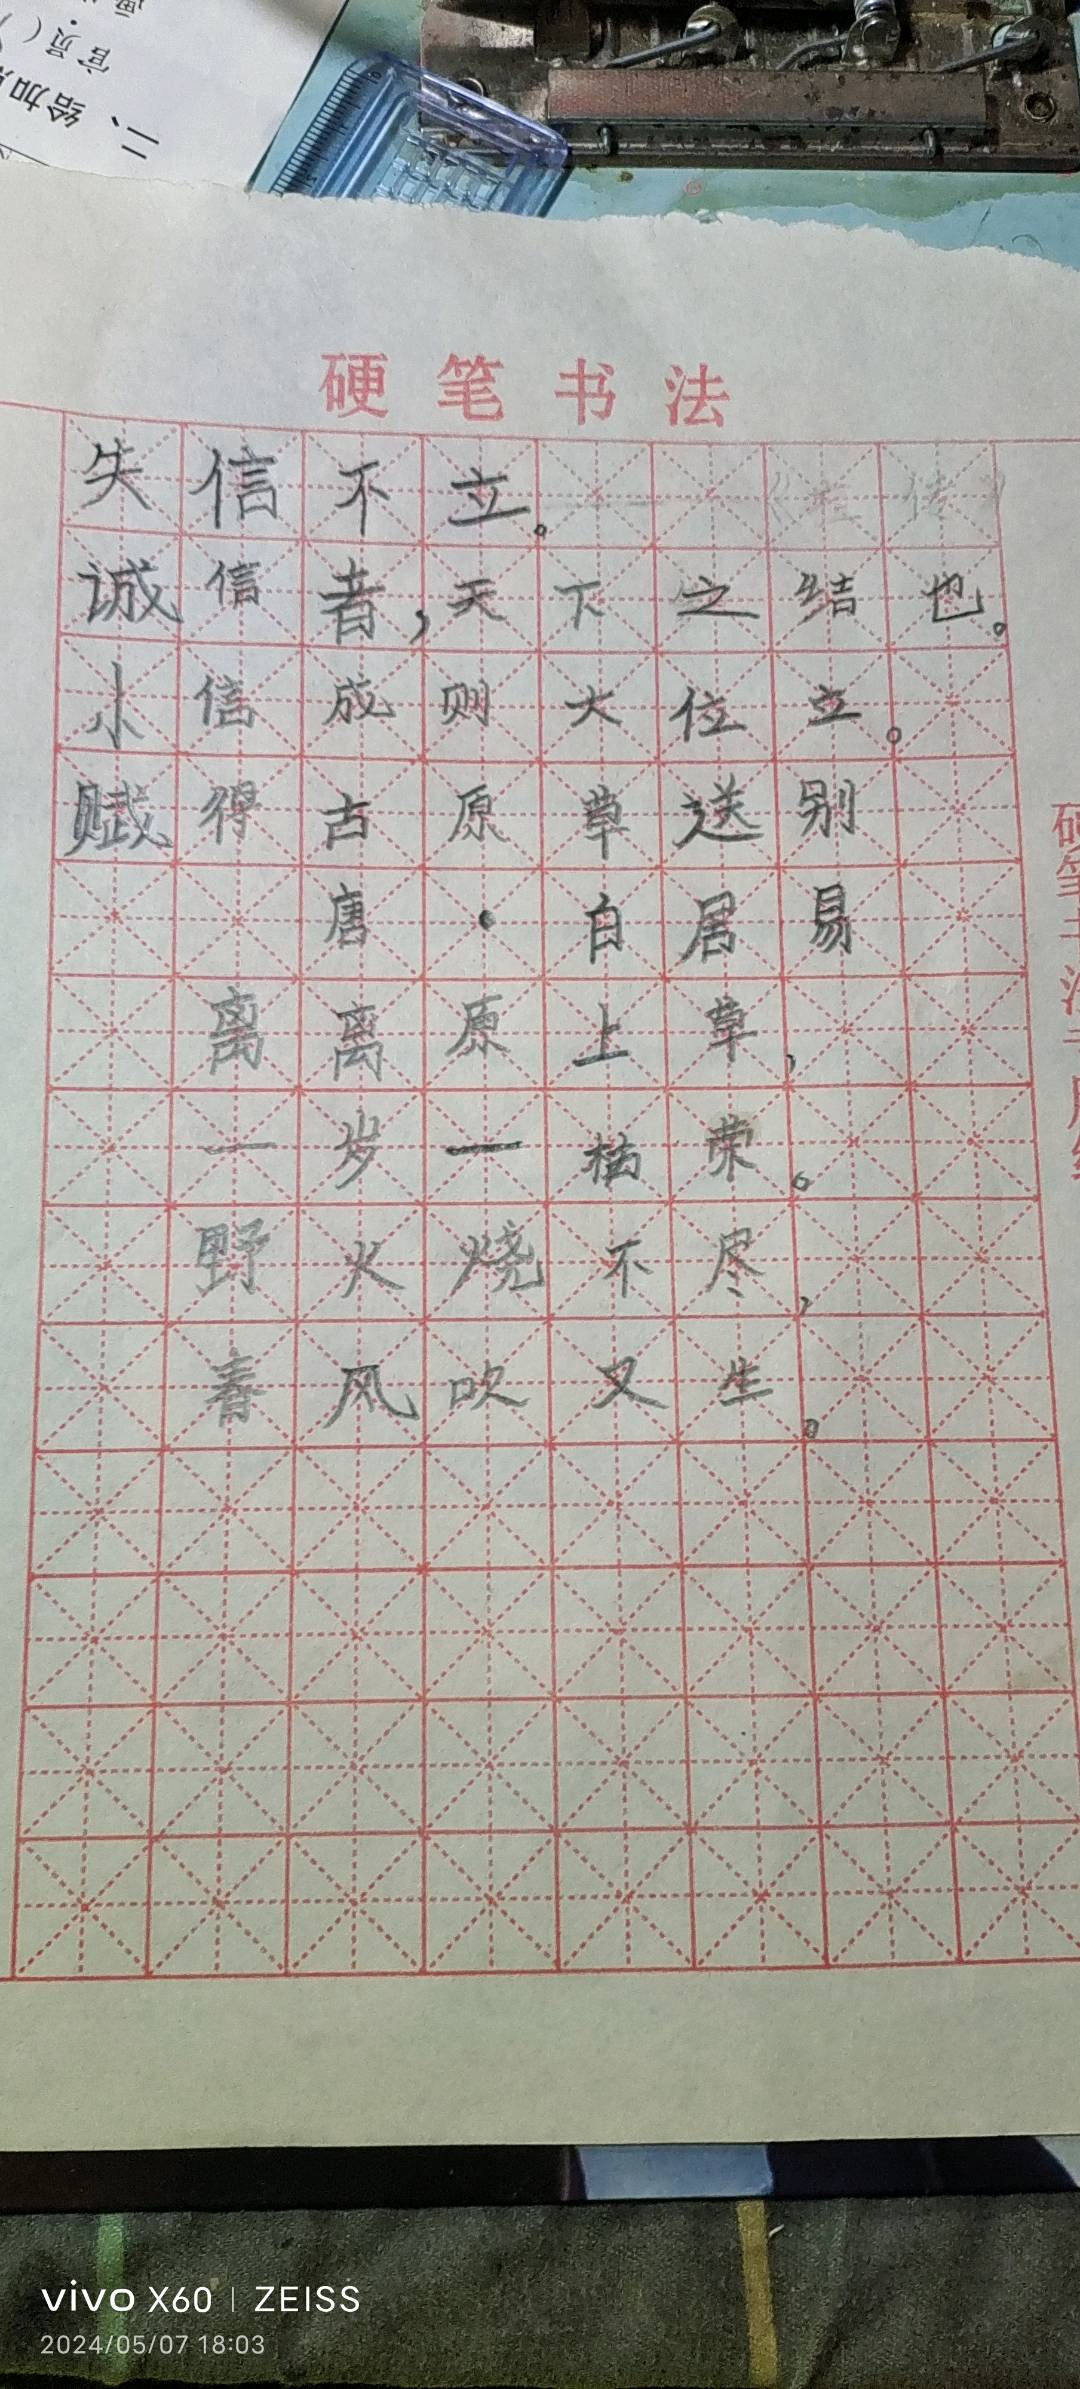 二、给加
官员(
硬笔书法
失信不立。
诚信者,天下之结也。
小信成则大位立。
赋得古原草送别
唐·白居易
离离原上草,
一岁一枯荣。
野火烧不尽,
春风吹又生。
vivo X60 | ZEISS
2024/05/07 18:03